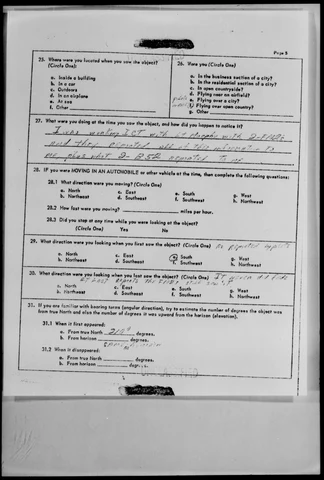 Page 5
25. Where were you located when you saw the object?
(Circle One):
a. Inside a building
b. In a car
c. Outdoors
d. In an airplane
e. At sea
f. Other
26. Were you (Circle One)
a. In the business section of a city?
b. In the residential section of a city?
c. In open countryside?
d. Flying near an airfield?
e. Flying over a city?
f. Flying over open country?
g. Other
27. What were you doing at the time you saw the object, and how did you happen to notice it?
I was working with
and they reported all of this information to
me
28. IF you were MOVING IN AN AUTOMOBILE or other vehicle at the time, then complete the following questions:
28.1 What direction were you moving? (Circle One)
a. North c. East e. South g. West
b. Northeast d. Southeast f. Southwest h. Northwest
28.2 How fast were you moving? miles per hour.
28.3 Did you stop at any time while you were looking at the object?
(Circle One) Yes No
29. What direction were you looking when you first saw the object? (Circle One) As reported
a. North c. East e. South g. West
b. Northeast d. Southeast f. Southwest h. Northwest
30. What direction were you looking when you last saw the object? (Circle One)
a. North c. East e. South g. West
b. Northeast d. Southeast f. Southwest h. Northwest
31. If you are familiar with bearing terms (angular direction), try to estimate the number of degrees the object was
from true North and also the number of degrees it was upward from the horizon (elevation).
31.1 When it first appeared:
a. From true North 210° degrees.
b. From horizon degrees.
31.2 When it disappeared:
a. From true North degrees.
b. From horizon degrees.